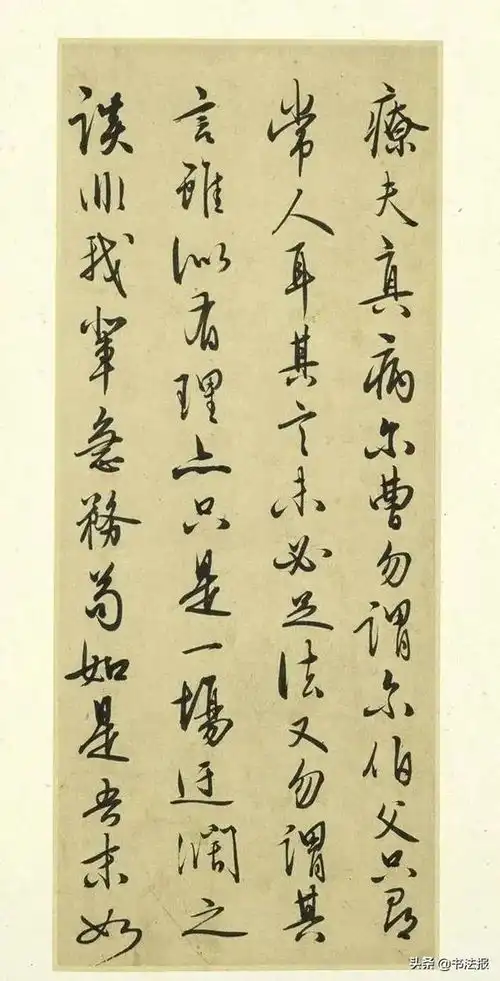 療夫真病尔曹勿謂尔伯父只是
常人耳其言未必足法又勿謂其
言雖似有理亦只是一場迂濶之
談非我輩急務苟如是吾末如
头条 @书法报